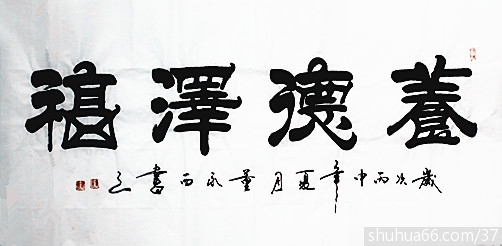 養德澤福
歲次丙申年夏月董永西書
shuhua66.com/37